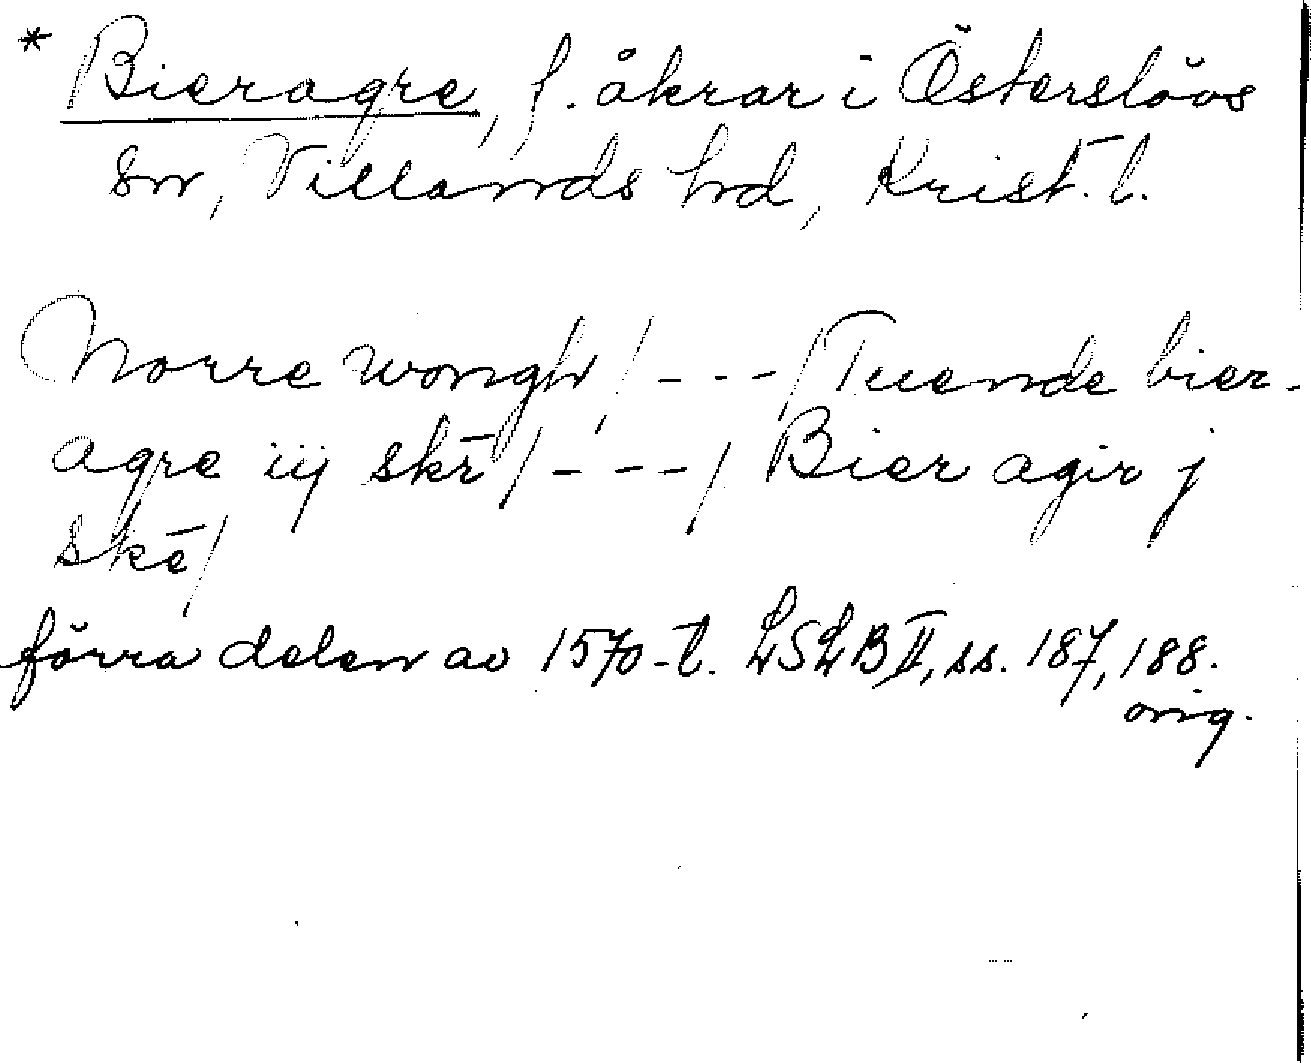 * Bieragre, f. åkrar i Österslövs
sn, Villands hd, Krist. l.
Norre wongh, / - - - / Tuende bier-
agre iij skē / - - - /, Bier agir j
skē /
förra delen av 1570-t. LSLB II, ss. 187, 188.
orig.